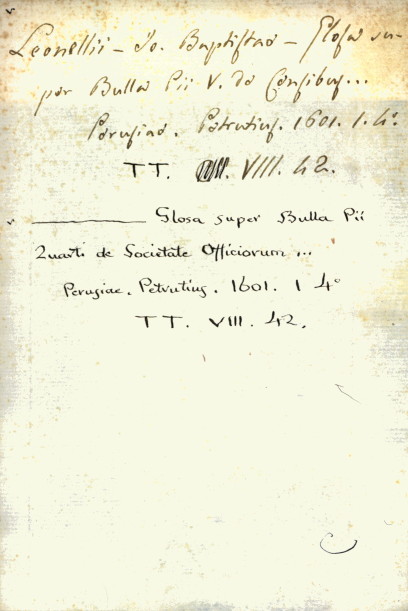 Leonellii - Jo. Baptistae - Glosa su-
per Bulla Pii V. de Censibus...
Perusiae. Petrutius. 1601. 1. 4º
TT. VIII. 42.
Glosa super Bulla Pii
Quarti de Societate Officiorum ...
Perusiae. Petrutius. 1601. 1 4º
TT. VIII. 42.